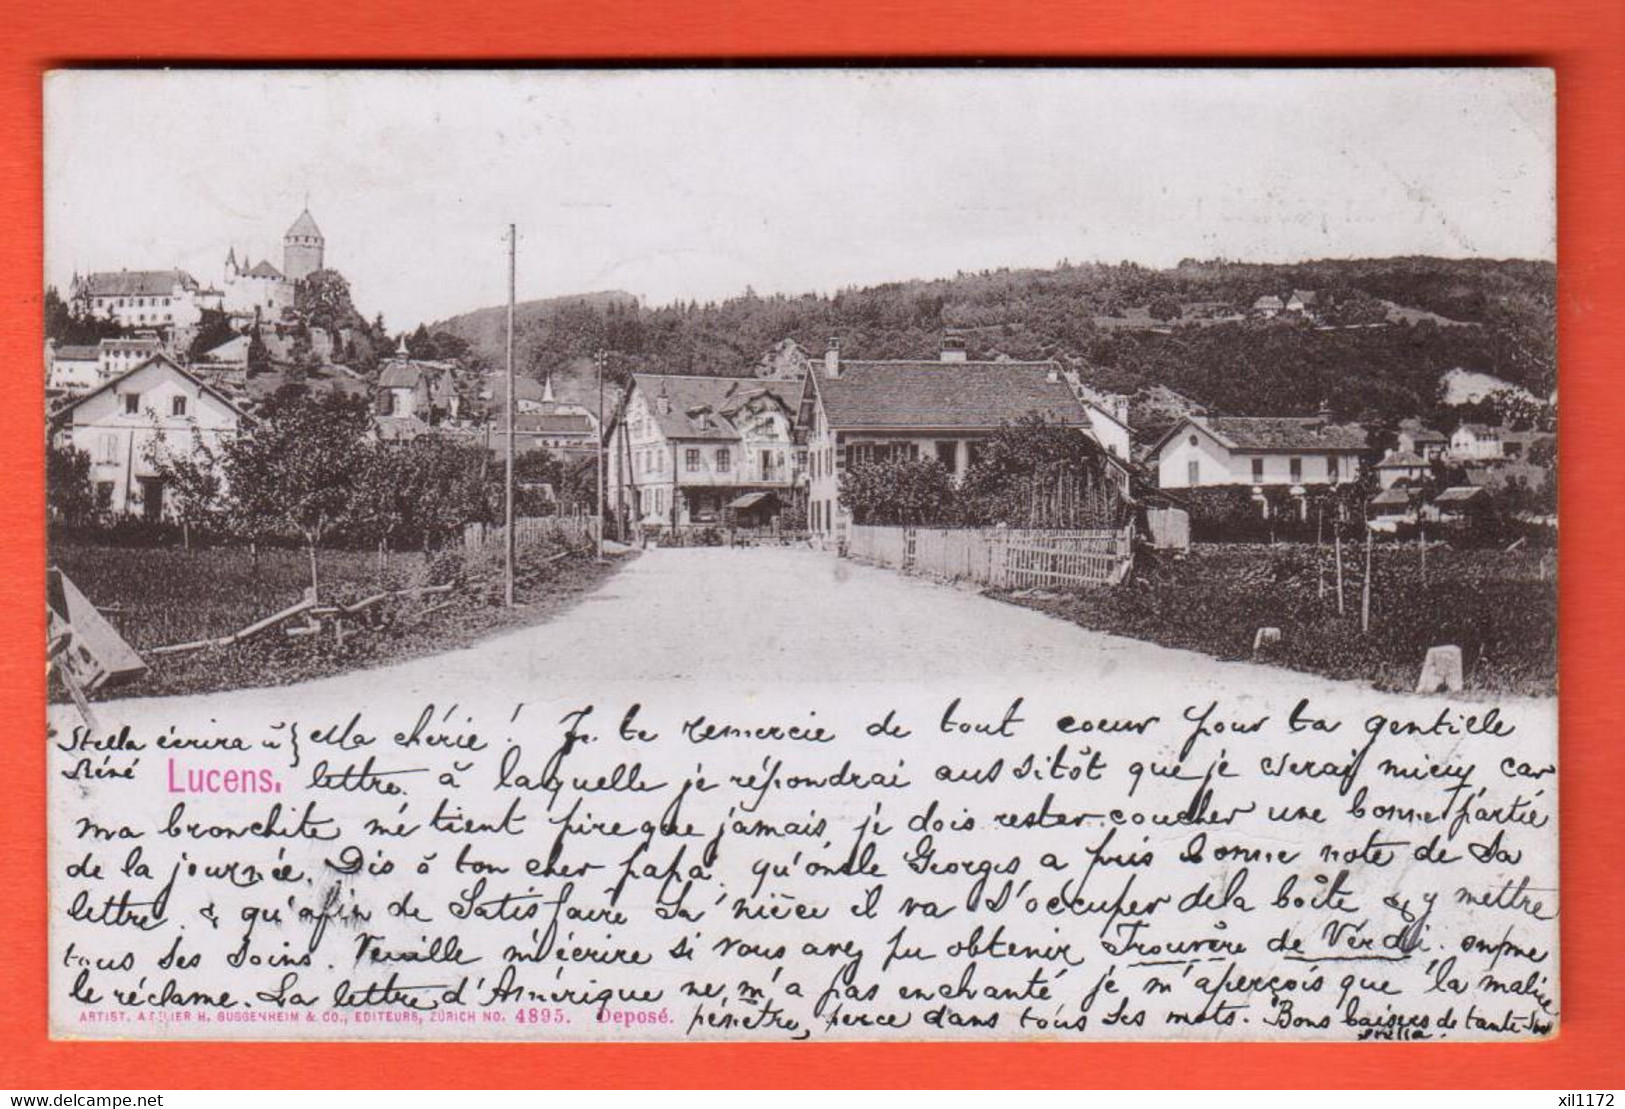 Stella écrira à Ma chérie ! Je te remercie de tout coeur pour ta gentille
Réné Lucens. lettre à laquelle je répondrai aussitôt que je serai mieux car
ma bronchite me tient pire que jamais, je dois rester coucher une bonne partie
de la journée. Dis à ton cher papa qu'oncle Georges a pris bonne note de sa
lettre & qu'afin de satisfaire sa nièce il va s'occuper de la boîte & y mettre
tous ses soins. Veuille m'écrire si vous avez pu obtenir Trouvère de Verdi. on me
le réclame. La lettre d'Amérique ne m'a pas enchanté je m'aperçois que la malice
ARTIST. ATELIER H. GUGGENHEIM & CO., EDITEURS, ZÜRICH NO. 4895. Deposé. pénètre, perce dans tous ses mots. Bons baisers de tante
delcampe.net
xil1172